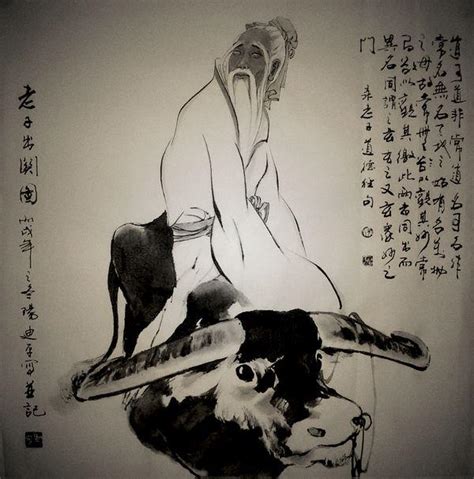 道可道非常道名可名非
常名無名天地之始有名萬物
之母故常無欲以觀其妙常
有欲以觀其徼此兩者同出而
異名同謂之玄玄之又玄衆妙之
門 录老子道德经句
老子出關圖 丙戌年之冬陽迪平寫並記